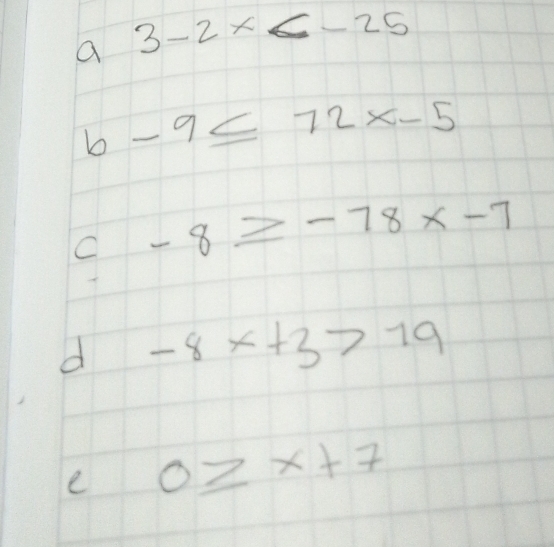 a 3-2x < -25
b -9 ≤ 12x-5
c -8 ≥ -18x-1
d -8x+3 > 19
e 0 ≥ x+7